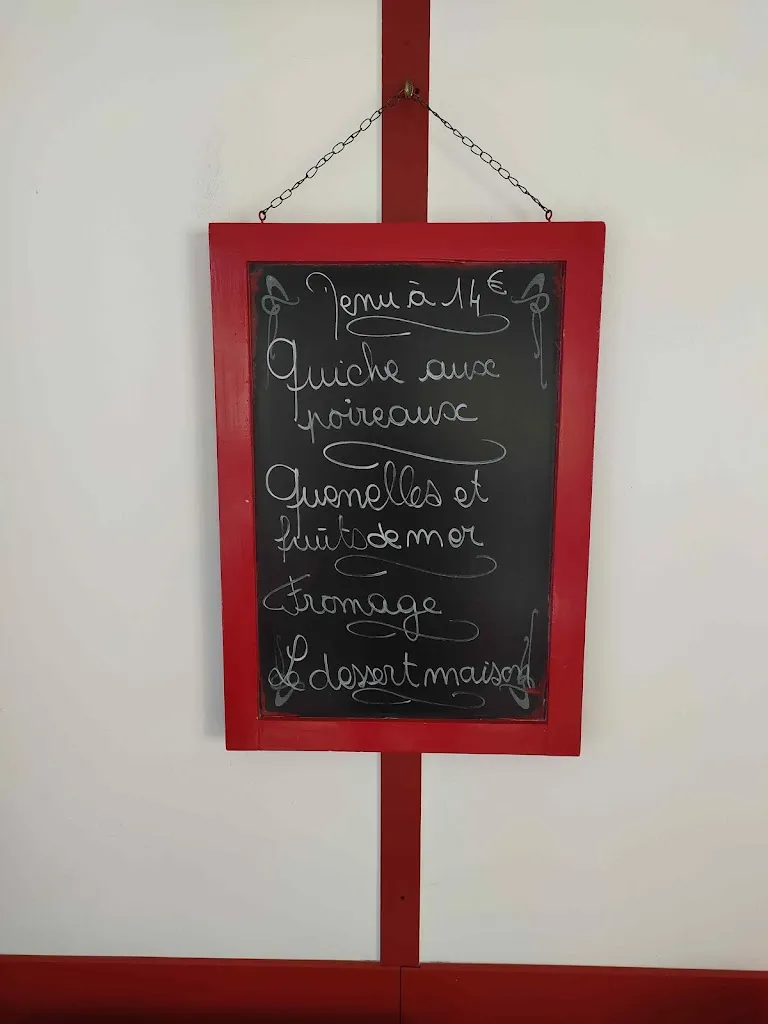 Menu à 14€
Quiche aux
poireaux
Quenelles et
fruits de mer
Fromage
Le dessert maison